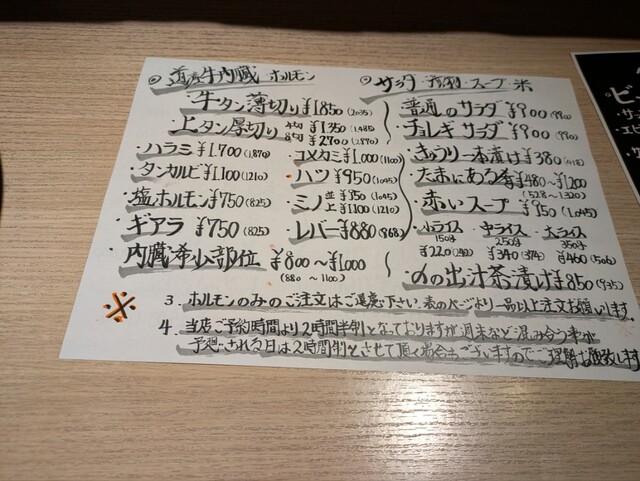 ◎道産牛内蔵 ホルモン
・牛タン薄切り ¥1850 (2035)
・上タン厚切り 4切 ¥1350 (1485)
8切 ¥2700 (2970)
・ハラミ ¥1.700 (1,870)
・タンカルビ ¥1.100 (1210)
・塩ホルモン ¥750 (825)
・ギアラ ¥750 (825)
・コメカミ ¥1.000 (1100)
・ハツ ¥950 (1045)
・ミノ 並 ¥950 (1045)
上 ¥1100 (1210)
・レバー ¥880 (968)
・内蔵希少部位 ¥800〜¥1000
(880〜1100)
◎サラダ・スープ 米
・普通のサラダ ¥900 (990)
・チョレギサラダ ¥900 (990)
・きゅうり一本漬け ¥380 (418)
・たまにある季 ¥480〜¥1200
(528〜1320)
・赤いスープ ¥950 (1.045)
・小ライス ・中ライス ・大ライス
150g 250g 350g
¥220 (242) ¥340 (374) ¥460 (506)
・〆の出汁茶漬け ¥850 (935)
※
3. ホルモンのみのご注文はご遠慮下さい。表のページより一品以上注文お願いします。
4. 当店ご予約時間より2時間半制となっておりますが週末など混み合う事が
予想される日は2時間制とさせて頂く場合もございますのでご理解お願い致します